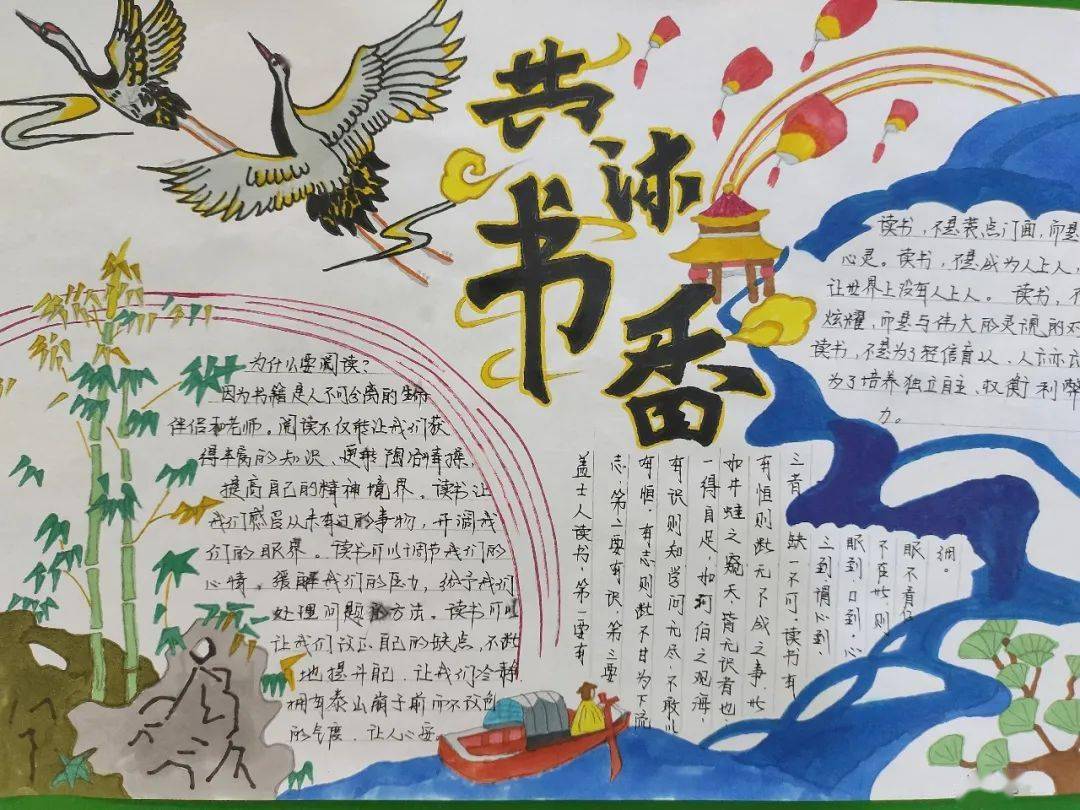 共沐
书香
为什么要阅读?
因为书籍是人不可分离的生命
伴侣和老师。阅读不仅能让我们获
得丰富的知识、更能陶冶情操、
提高自己的精神境界。读书让
我们感受从未有过的事物,开阔我
们的眼界。读书可以调节我们的
心情。缓解我们的压力,给予我们
处理问题的方法。读书可以
让我们改正自己的缺点,不断
地提升自己.让我们冷静
拥有泰山崩于前而不改色
的气度.让人心安。
盖士人读书,第一要有
志,第二要有识,第三要
有恒,有志则断不甘为下流
有识则知学问无尽,不敢以
一得自足,如河伯之观海,
如井蛙之窥天,皆无识者也,
有恒则断无不成之事,此
三者缺一不可。读书有
三到谓心到
眼到口到,心
不在此,则
眼不看仔
细。
读书,不是装点门面,而是
心灵。读书,不是成为人上人,
让世界上没有人上人。读书,不
炫耀,而是与伟大的灵魂的对
读书,不是为了轻信盲从、人云亦
为了培养独立自主、权衡利弊
力。